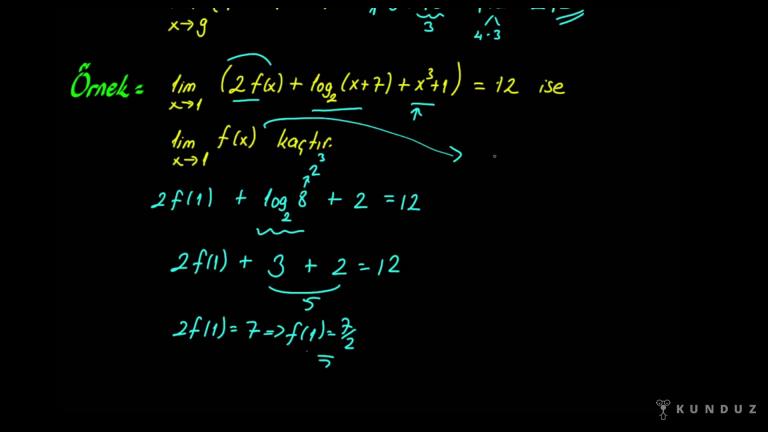 x→9
3
4·3
Örnek = lim x→1 (2f(x) + log₂(x+7) + x³+1) = 12 ise
lim x→1 f(x) kaçtır.
2f(1) + log₂8 + 2 = 12
2³
2f(1) + 3 + 2 = 12
5
2f(1) = 7 => f(1) = 7/2
KUNDUZ